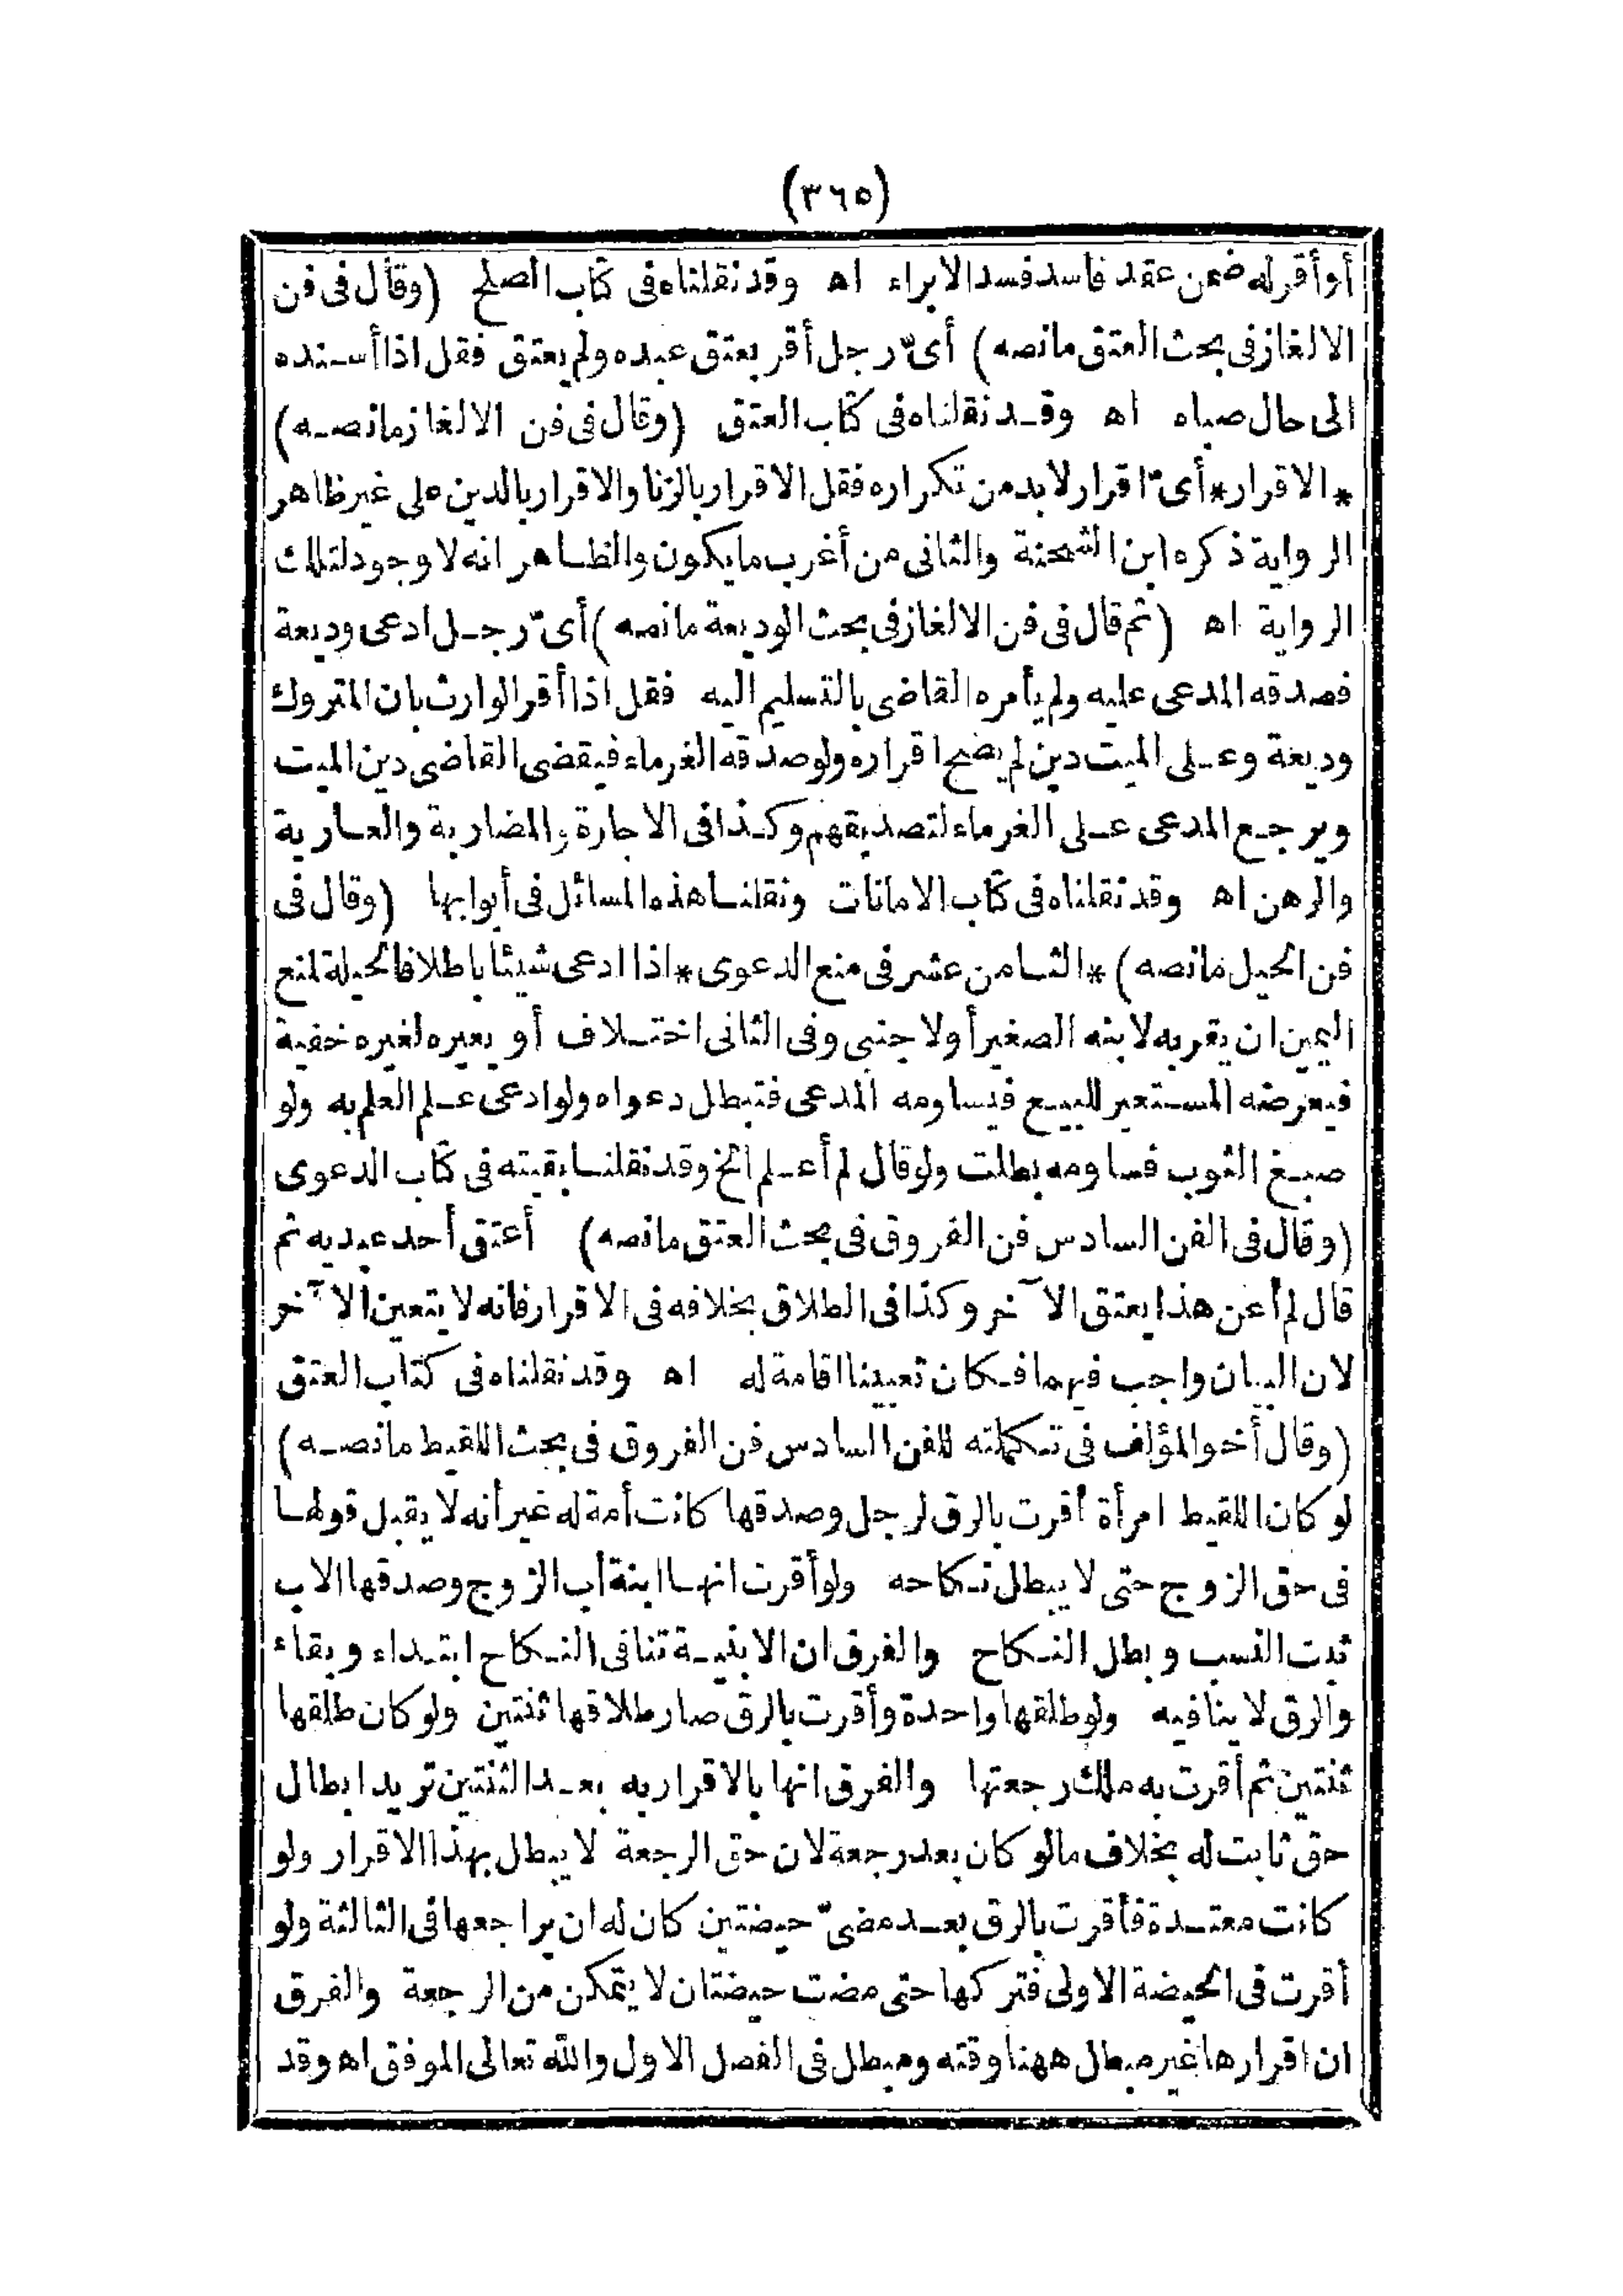 (٣٦٥)
أوأقرله ضمن عقد فاسد فسد الابراء اه وقد نقلناه فى كتاب الصلح (وقال فى فن
الالغاز فى بحث العتق مانصه) أىّ رجل أقر بعتق عبده ولم يعتق فقل اذا أسنده
الى حال صباه اه وقد نقلناه فى كتاب العتق (وقال فى فن الالغاز مانصه)
*الاقرار* أىّ اقرار لابد من تكراره فقل الاقرار بالزنا والاقرار بالدين على غير ظاهر
الرواية ذكره ابن الشحنة والثانى من أغرب ما يكون والظاهر انه لا وجود لتلك
الرواية اه (ثم قال فى فن الالغاز فى بحث الوديعة مانصه) أىّ رجل ادعى وديعة
فصدقه المدعى عليه ولم يأمره القاضى بالتسليم اليه فقل اذا أقر الوارث بان المتروك
وديعة وعلى الميت دين لم يصح اقراره ولو صدقه الغرماء فيقضى القاضى دين الميت
ويرجع المدعى على الغرماء لتصديقهم وكذا فى الاجارة والمضاربة والعارية
والرهن اه وقد نقلناه فى كتاب الامانات ونقلنا هذه المسائل فى أبوابها (وقال فى
فن الحيل مانصه) *الثامن عشر فى منع الدعوى* اذا ادعى شيئا باطلا فالحيلة لمنع
اليمين ان يقر به لابنه الصغير أو لاجنبى وفى الثانى اختلاف أو يعيره لغيره خفية
فيعرضه المستعير للبيع فيساومه المدعى فتبطل دعواه ولو ادعى علم العلم به ولو
صبغ الثوب فساومه بطلت ولو قال لم أعلم الخ وقد نقلنا بقيته فى كتاب الدعوى
(وقال فى الفن السادس فن الفروق فى بحث العتق مانصه) أعتق أحد عبديه ثم
قال لم أعن هذا يعتق الآخر وكذا فى الطلاق بخلافه فى الاقرار فانه لا يتعين الآخر
لان البيان واجب فيهما فكان تعيينا اقامة له اه وقد نقلناه فى كتاب العتق
(وقال أخو المؤلف فى تكملته للفن السادس فن الفروق فى بحث اللقيط مانصه)
لو كان اللقيط امرأة أقرت بالرق لرجل وصدقها كانت أمة له غير أنه لا يقبل قولها
فى حق الزوج حتى لا يبطل نكاحه ولو أقرت انها ابنة أب الزوج وصدقها الاب
ثبت النسب وبطل النكاح والفرق ان الابنية تنافى النكاح ابتداء وبقاء
والرق لا ينافيه ولو طلقها واحدة وأقرت بالرق صار طلاقها ثنتين ولو كان طلقها
ثنتين ثم أقرت به ملك رجعتها والفرق انها بالاقرار به بعد الثنتين تريد ابطال
حق ثابت له بخلاف مالو كان بعد رجعة لان حق الرجعة لا يبطل بهذا الاقرار ولو
كانت معتدة فأقرت بالرق بعد مضىّ حيضتين كان له ان يراجعها فى الثالثة ولو
أقرت فى الحيضة الاولى فتركها حتى مضت حيضتان لا يتمكن من الرجعة والفرق
ان اقرارها غير مبطل ههنا وقته ومبطل فى الفصل الاول والله تعالى الموفق اه وقد